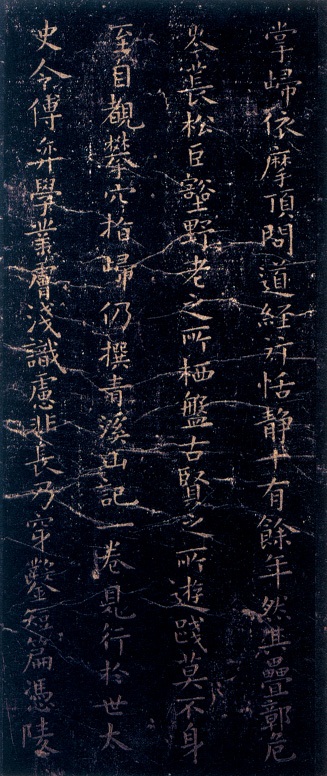 掌歸依摩頂問道經行恬靜十有餘年然其疊鄣危
岑萇松巨壑野老之所栖盤古賢之所遊踐莫不身
至目覩攀穴指歸仍撰青溪山記一卷見行於世太
史令傅弈學業膚淺識慮非長乃穿鑿短篇憑陵